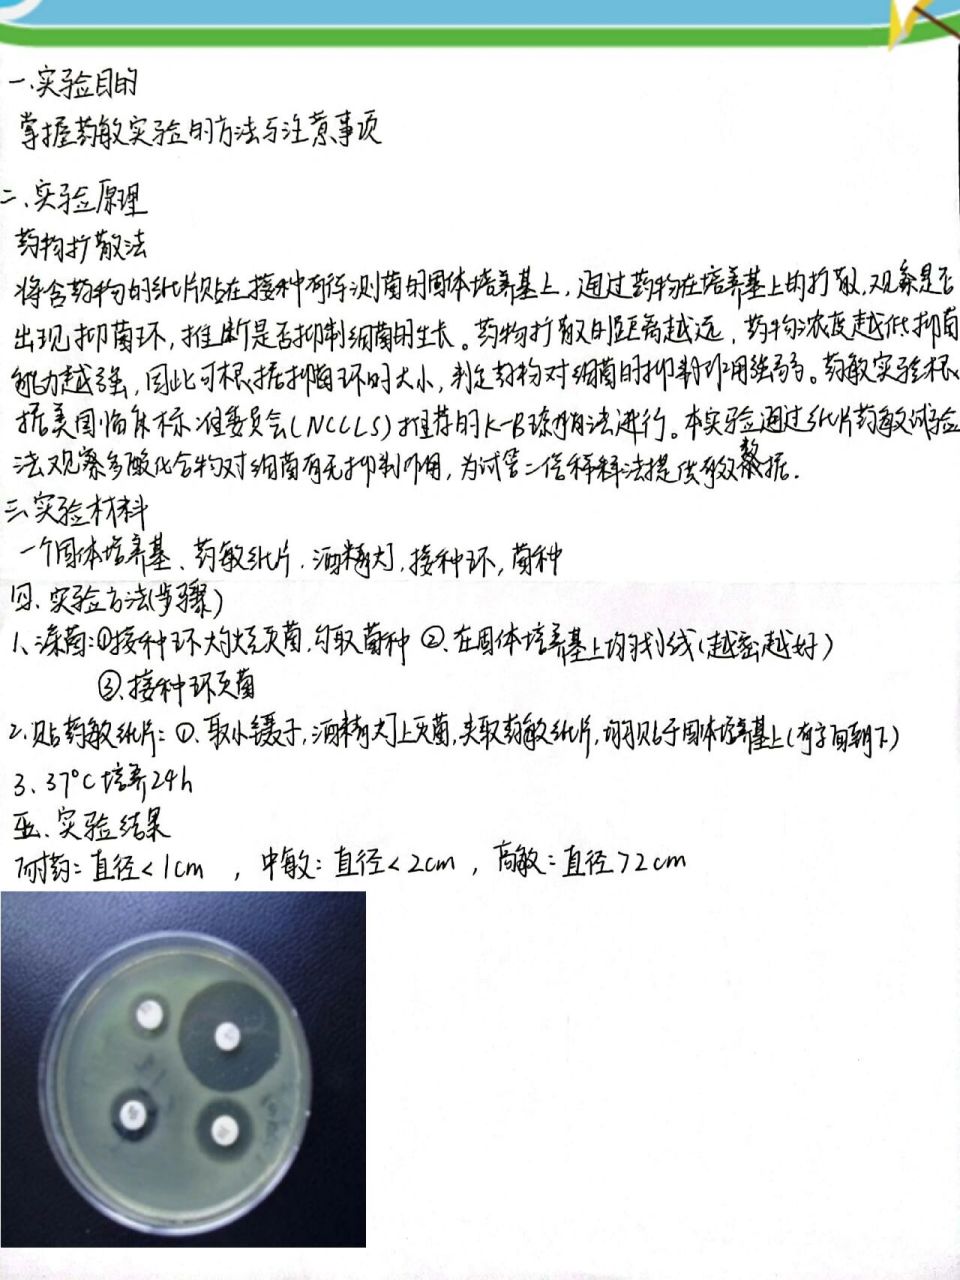 一、实验目的
掌握药敏实验的方法与注意事项
二、实验原理
药物扩散法
将含药物的纸片贴在接种有待测菌的固体培养基上，通过药物在培养基上的扩散，观察是否
出现抑菌环，推断是否抑制细菌的生长。药物扩散的距离越远，药物浓度越低抑菌
能力越强，因此可根据抑菌环的大小，判定药物对细菌的抑制作用强弱。药敏实验根
据美国临床标准委员会(NCCLS)推荐的K-B琼脂法进行。本实验通过纸片药敏试验
法观察多酸化合物对细菌有无抑制作用，为试管二倍稀释法提供有效数据.
三、实验材料
一个固体培养基、药敏纸片、酒精灯，接种环，菌种
四、实验方法(步骤)
1、涂菌:①接种环火灼烧灭菌，勾取菌种 ②、在固体培养基上均匀划线(越密越好)
③、接种环灭菌
2、贴药敏纸片: ①、取小镊子，酒精灯上灭菌，夹取药敏纸片，均匀贴于固体培养基上(有字面朝下)
3、37°C培养24h
五、实验结果
耐药: 直径<1cm ，中敏: 直径<2cm ，高敏: 直径>2cm